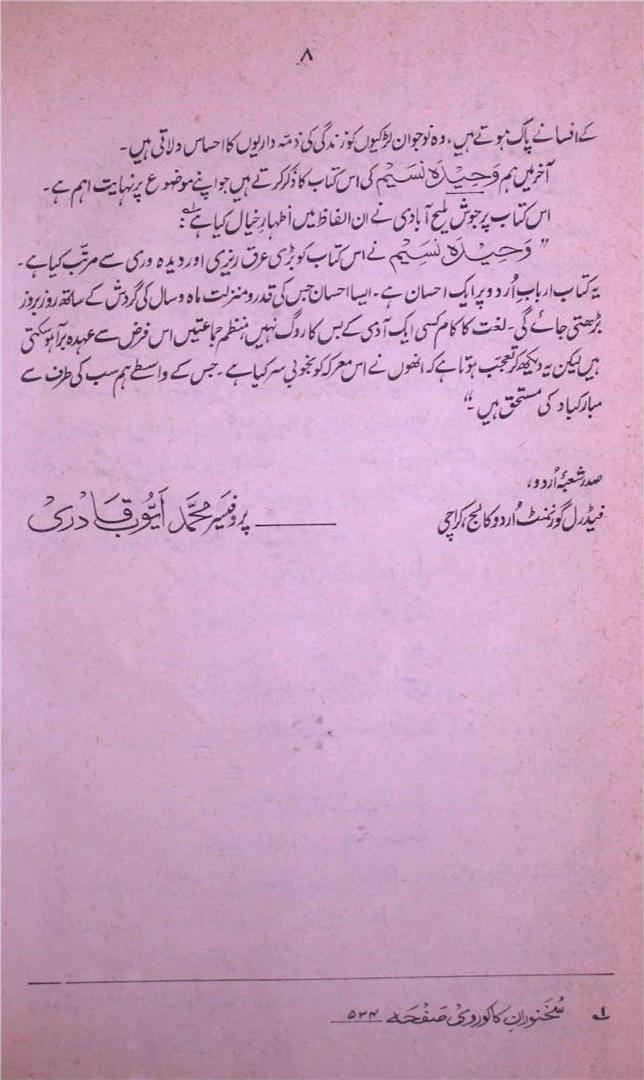 ۸
کے افسانے پاک ہوتے ہیں، وہ نوجوان لڑکیوں کو زندگی کی ذمہ داریوں کا احساس دلاتی ہیں۔
آخر میں ہم وحیدہ نسیم کی اس کتاب کا ذکر کرتے ہیں جو اپنے موضوع پر نہایت اہم ہے۔
اس کتاب پر جوش ملیح آبادی نے ان الفاظ میں اظہارِ خیال کیا ہے۱؎:
”وحیدہ نسیم نے اس کتاب کو بڑی عرق ریزی اور دیدہ وری سے مرتّب کیا ہے۔
یہ کتاب اربابِ اُردو پر ایک احسان ہے۔ ایسا احسان جس کی قدر و منزلت ماہ و سال کی گردش کے ساتھ روز بروز
بڑھتی جائے گی۔ لغت کا کام کسی ایک آدمی کے بس کا روگ نہیں، منظم جماعتیں اس فرض سے عہدہ برآ ہو سکتی
ہیں لیکن یہ دیکھ کر تعجب ہوتا ہے کہ انھوں نے اس معرکہ کو بخوبی سر کیا ہے۔ جس کے واسطے ہم سب کی طرف سے
مبارکباد کی مستحق ہیں۔“
صدر شعبۂ اُردو،
فیڈرل گورنمنٹ اُردو کالج، کراچی ——— پروفیسر محمّد ایّوب قادری
۱؎ سُخنورانِ کاکوروی صفحہ ۵۳۴